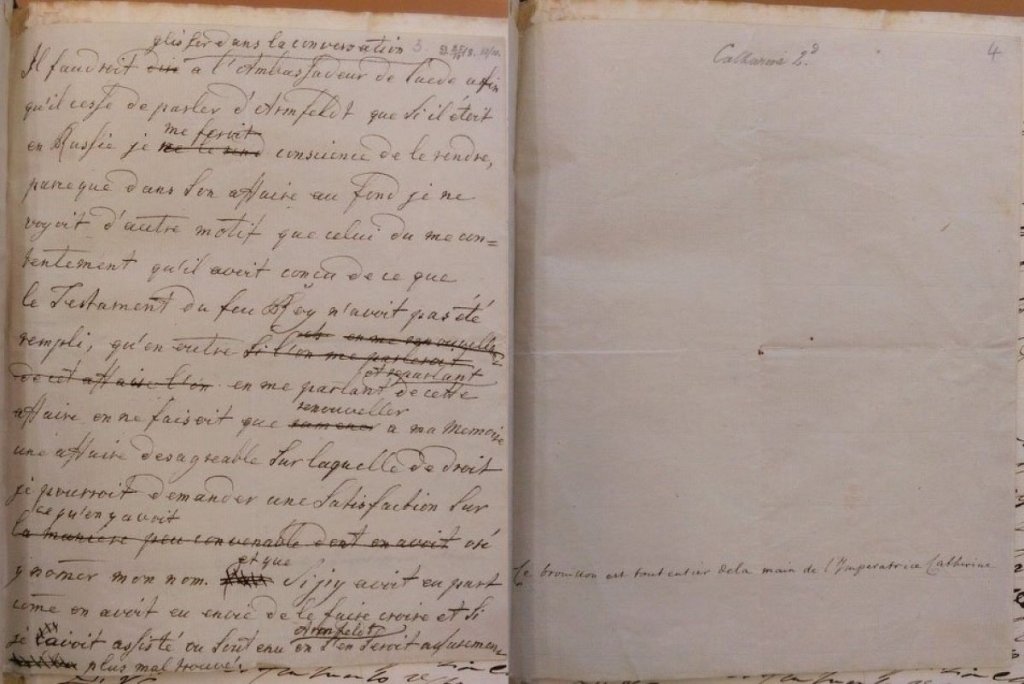 glisser dans la conversation 3
Il faudroit dire a l'Ambassadeur de Suede afin
qu'il cesse de parler d'Armfeldt que si il étoit
me feroit
en Russie je me le rend conscience de le rendre,
parceque dans Son affaire au fond je ne
voyoit d'autre motif que celui du mecon=
tentement qu'il avoit concu de ce que
le Testament du feu Roy n'avoit pas été
rempli, qu'en outre si l'on me parleroit
en me renouvelle
de cet affaire l'on en me parlant de cette
et reparlant
affaire on ne faisoit que ramener a ma Memoire
renouveller
une affaire desagreable Sur laquelle de droit
je pourroit demander une Satisfaction Sur
ce qu'on y avoit
la maniere peu convenable dont on avoit osé
y nomer mon nom.
et que
Si j'y avoit eu part
come on avoit eu envie de le faire croire et Si
je l'avoit assisté ou Soutenu on s'en Seroit assurement
Armfeldt
plus mal trouvé.
Catharine 2.d
4
Ce brouillon est tout entier de la main de l'Imperatrice Catherine